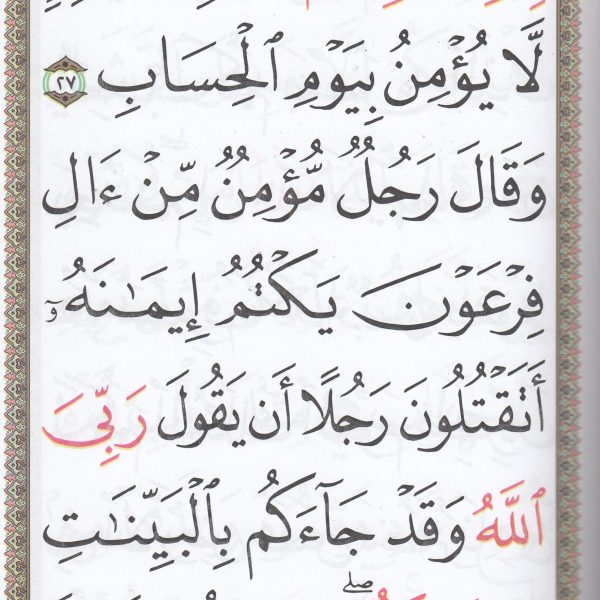 لَّا يُؤْمِنُ بِيَوْمِ ٱلْحِسَابِ ٢٧
وَقَالَ رَجُلٌ مُّؤْمِنٌ مِّنْ ءَالِ
فِرْعَوْنَ يَكْتُمُ إِيمَـٰنَهُۥٓ
أَتَقْتُلُونَ رَجُلًا أَن يَقُولَ رَبِّىَ
ٱللَّهُ وَقَدْ جَآءَكُم بِٱلْبَيِّنَـٰتِ